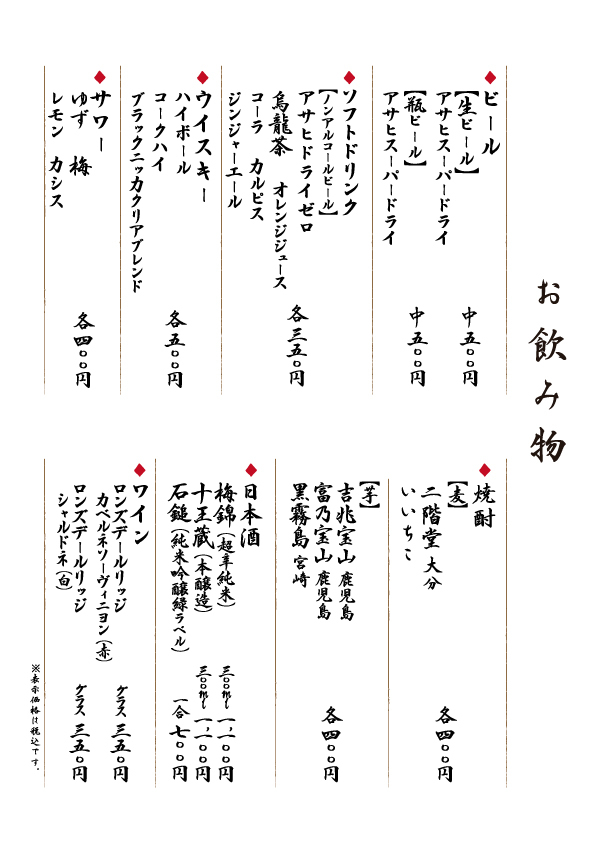 お飲み物
ビール
【生ビール】
アサヒスーパードライ
中 五〇〇円
【瓶ビール】
アサヒスーパードライ
中 五〇〇円
ソフトドリンク
【ノンアルコールビール】
アサヒドライゼロ
烏龍茶 オレンジジュース
コーラ カルピス
ジンジャーエール
各 三五〇円
ウイスキー
ハイボール
コークハイ
ブラックニッカクリアブレンド
各 五〇〇円
サワー
ゆず 梅
レモン カシス
各 四〇〇円
焼酎
【麦】
二階堂 大分
いいちこ
各 四〇〇円
【芋】
吉兆宝山 鹿児島
富乃宝山 鹿児島
黒霧島 宮崎
各 四〇〇円
日本酒
梅錦(超辛純米) 三〇〇ml 一,一〇〇円
十王蔵(本醸造) 三〇〇ml 一,一〇〇円
石鎚(純米吟醸緑ラベル) 一合 七〇〇円
ワイン
ロンズデールリッジ
カベルネソーヴィニヨン(赤)
グラス 三五〇円
ロンズデールリッジ
シャルドネ(白)
グラス 三五〇円
※表示価格は税込です。